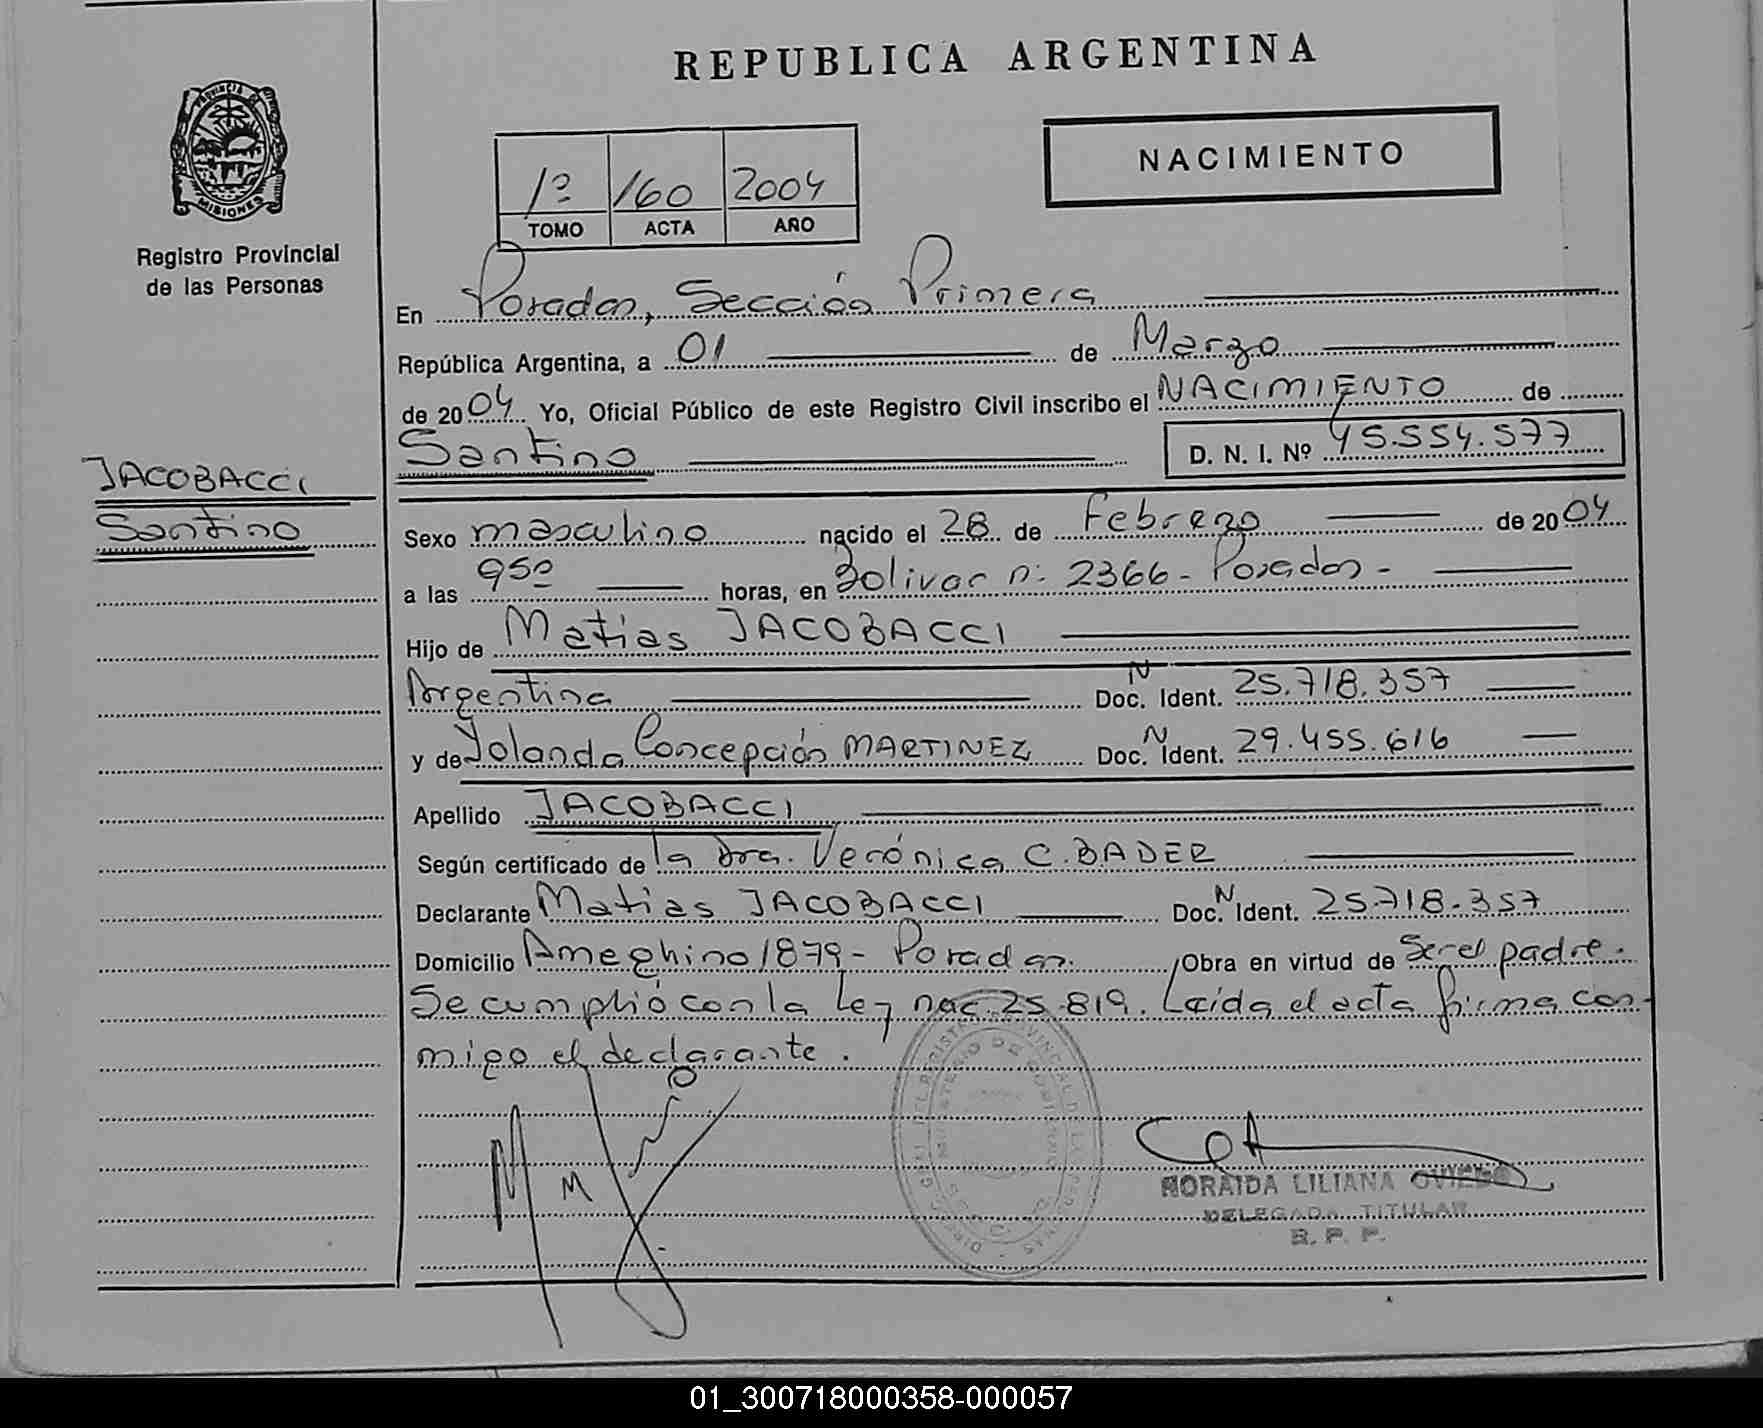 REPUBLICA ARGENTINA
PROVINCIA DE
MISIONES
Registro Provincial
de las Personas
NACIMIENTO
1º 160 2004
TOMO ACTA AÑO
En Posadas, Sección Primera
República Argentina, a 01 de Marzo
de 2004 Yo, Oficial Público de este Registro Civil inscribo el NACIMIENTO de
Santino D. N. I. Nº 45.554.577
JACOBACCI
Santino
Sexo masculino nacido el 28 de Febrero de 2004
a las 950 horas, en Bolivar n: 2366 - Posadas -
Hijo de Matias JACOBACCI
Argentina Doc. N Ident. 25.718.357
y de Yolanda Concepción MARTINEZ Doc. N Ident. 29.455.616
Apellido JACOBACCI
Según certificado de la Dra. Verónica C. BADER
Declarante Matias JACOBACCI Doc. N Ident. 25.718.357
Domicilio Ameghino 1879 - Posadas. Obra en virtud de Ser el padre.
Se cumplió con la Ley nac. 25.819. Leída el acta firma con-
migo el declarante.
MINISTERIO DE GOBIERNO
NORAIDA LILIANA OVIEDO
DELEGADA TITULAR
R. P. P.
01_300718000358-000057